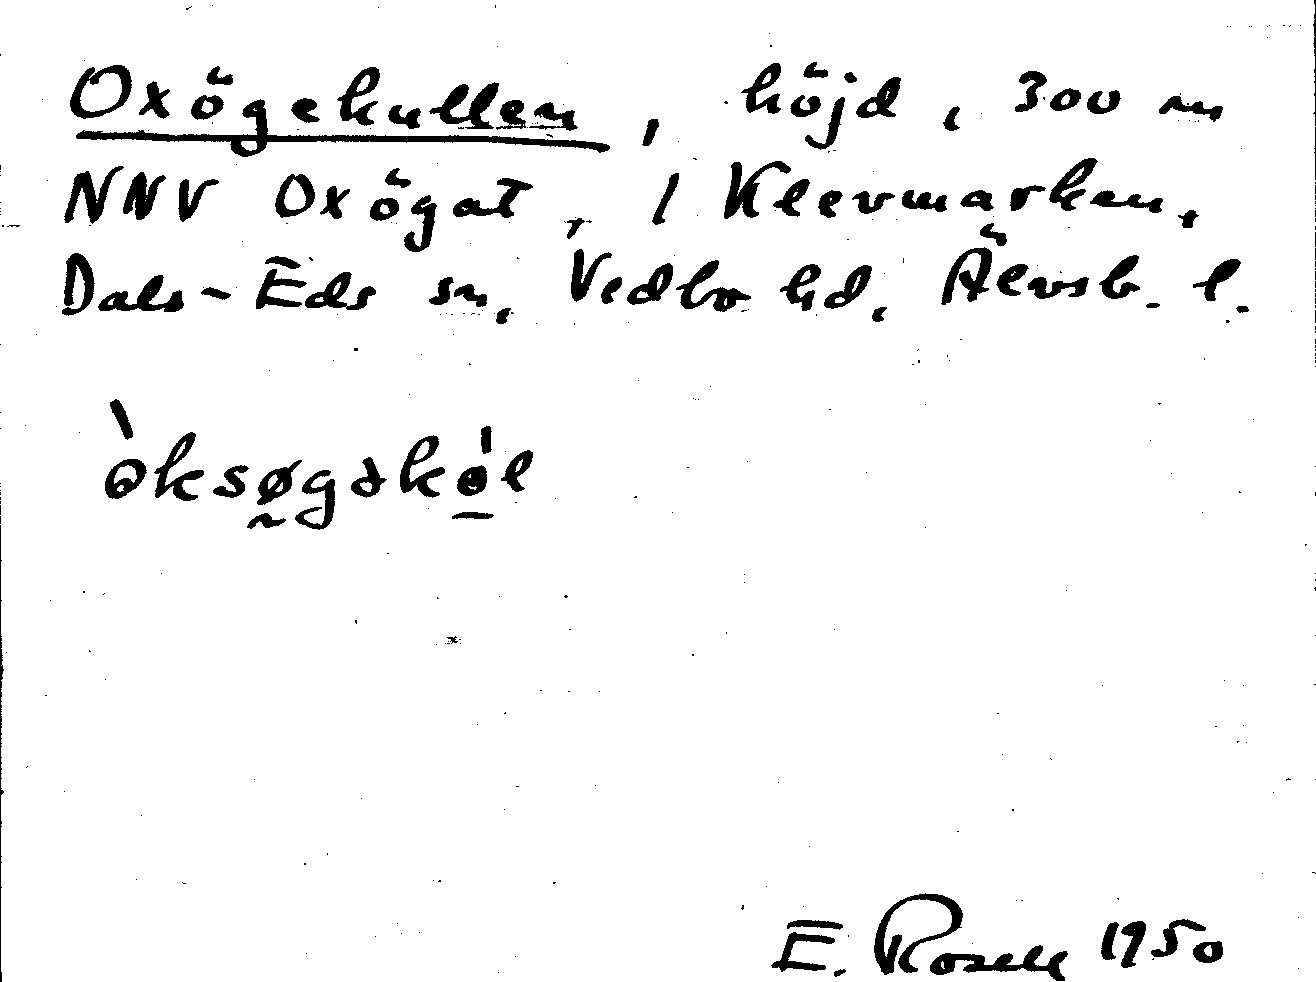 Oxögekullen, höjd, 300 m
NNV Oxögat, 1 Klevmarken,
Dals-Eds sn, Vedbo hd, Älvsb. l.
òksøgəkol
E. Rosell 1950